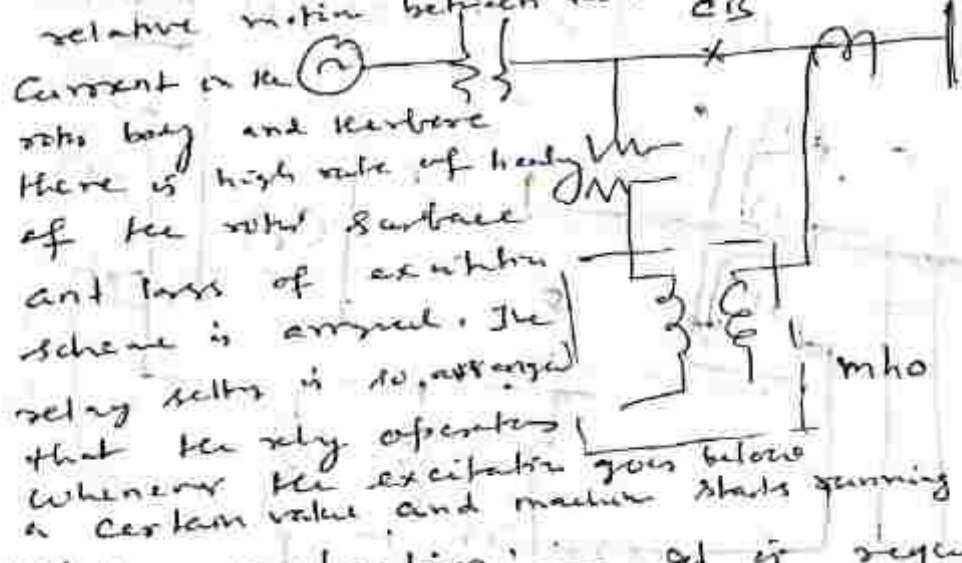 relative motion between
CB
Current in the
roto body and therbere
there is high rate of heating
of the rotor surbace
and loss of excitation
scheme is arranged. The
relay setting is so, arranged
mho
that the relay operates
whenever the excitation goes below
a certain value and machine starts running